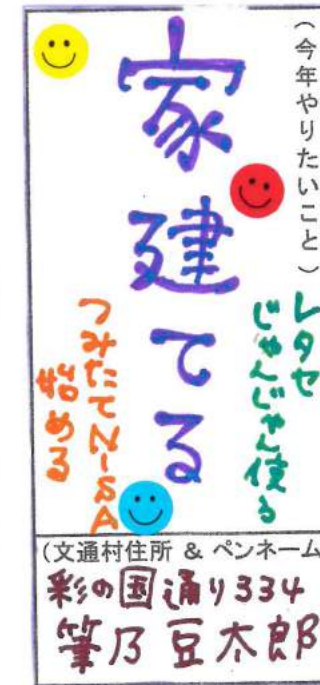 （今年やりたいこと）
レタセ
じゃんじゃん使う
家建てる
つみたてNISA
始める
(文通村住所 & ペンネーム
彩の国通り334
筆乃豆太郎